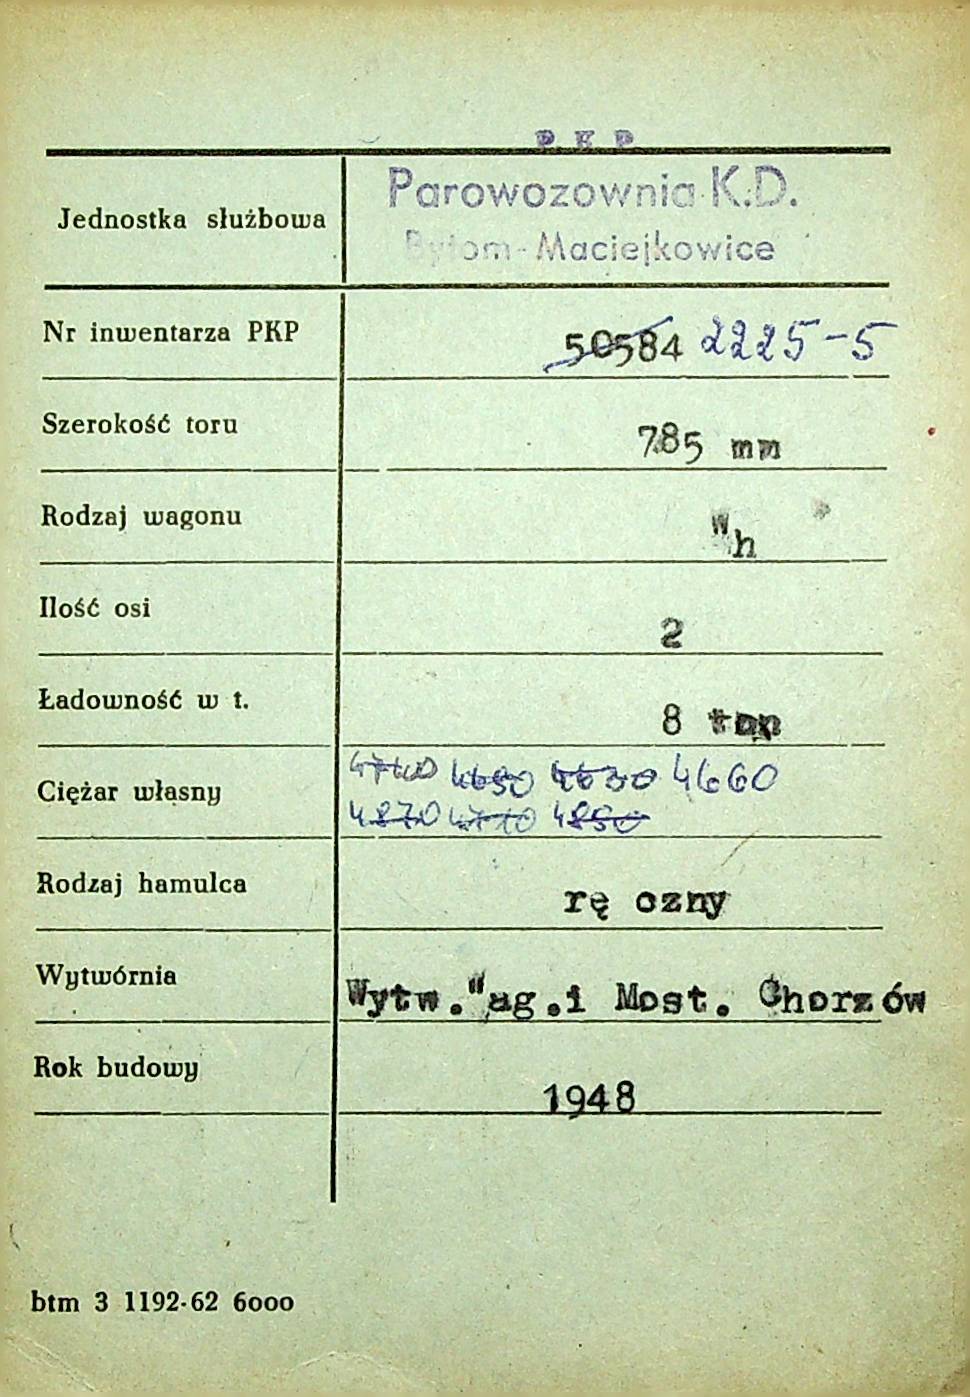 P. K. P.
Parowozownia K.D.
Jednostka służbowa
Bytom-Maciejkowice
Nr inwentarza PKP 50584 2225-5
Szerokość toru 785 mm
Rodzaj wagonu Wh
Ilość osi 2
Ładowność w t. 8 ton
4740 4690 4630 4660
Ciężar własny
4870 4710 4850
Rodzaj hamulca rę czny
Wytwórnia Wytw.Wag.i Most. Chorzów
Rok budowy 1948
btm 3 1192-62 6000